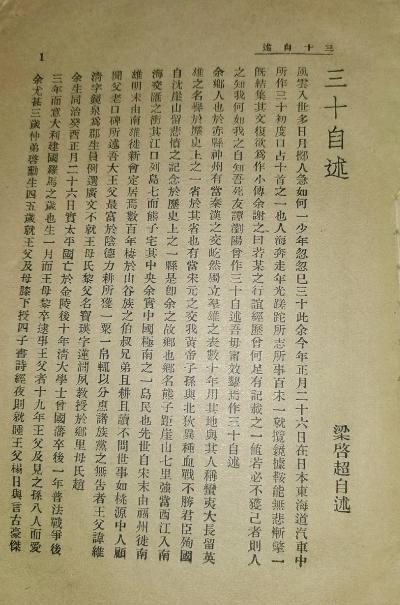 三十自述
1
三十自述
梁啓超自述
風雲入世多日月擲人急如何一少年忽忽已三十此余今年正月二十六日在日本東海道汽車中
所作三十初度口占十首之一也人海奔走年光蹉跎所志所事百未一就攬鏡據鞍能無悲慚擎一
既結集其文復欲爲作小傳余謝之曰若某之行誼經歷曾何足有記載之一値若必不獲已者則人
之知我何如我之自知吾死友譚瀏陽曾作三十自述吾毋甯效顰焉作三十自述
余鄉人也於赤縣神州有當秦漢之交屹然獨立羣雄之表數十年用其地與其人稱蠻夷大長留英
雄之名譽於歷史上之一省於其省也有當宋元之交我黃帝子孫與北狄異種血戰不勝君臣殉國
自沈崖山留悲憤之記念於歷史上之一縣是卽余之故鄉也鄉名熊子距崖山七里強當西江入南
海交匯之衝其江口列島七而熊子宅其中央余實中國極南之一島民也先世自宋末由福州徙南
雄明末由南雄徙新會定居焉數百年棲於山谷族之伯叔兄弟且耕且讀不問世事如桃源中人顧
聞父老口碑所述吾大王父最富於陰德力耕所獲一粟一帛輒以分惠諸族黨之無告者王父諱維
清字鏡泉爲郡生員例選廣文不就王母氏黎父名寶瑛字蓮澗夙教授於鄉里母氏趙
余生同治癸酉正月二十六日實太平國亡於金陵後十年淸大學士曾國藩卒後一年普法戰爭後
三年而意大利建國羅馬之歲也生一月而王母黎卒逮事王父者十九年王父及見之孫八人而愛
余尤甚三歲仲弟啓勳生四五歲就王父及母膝下授四子書詩經夜則就睡王父榻日與言古豪傑